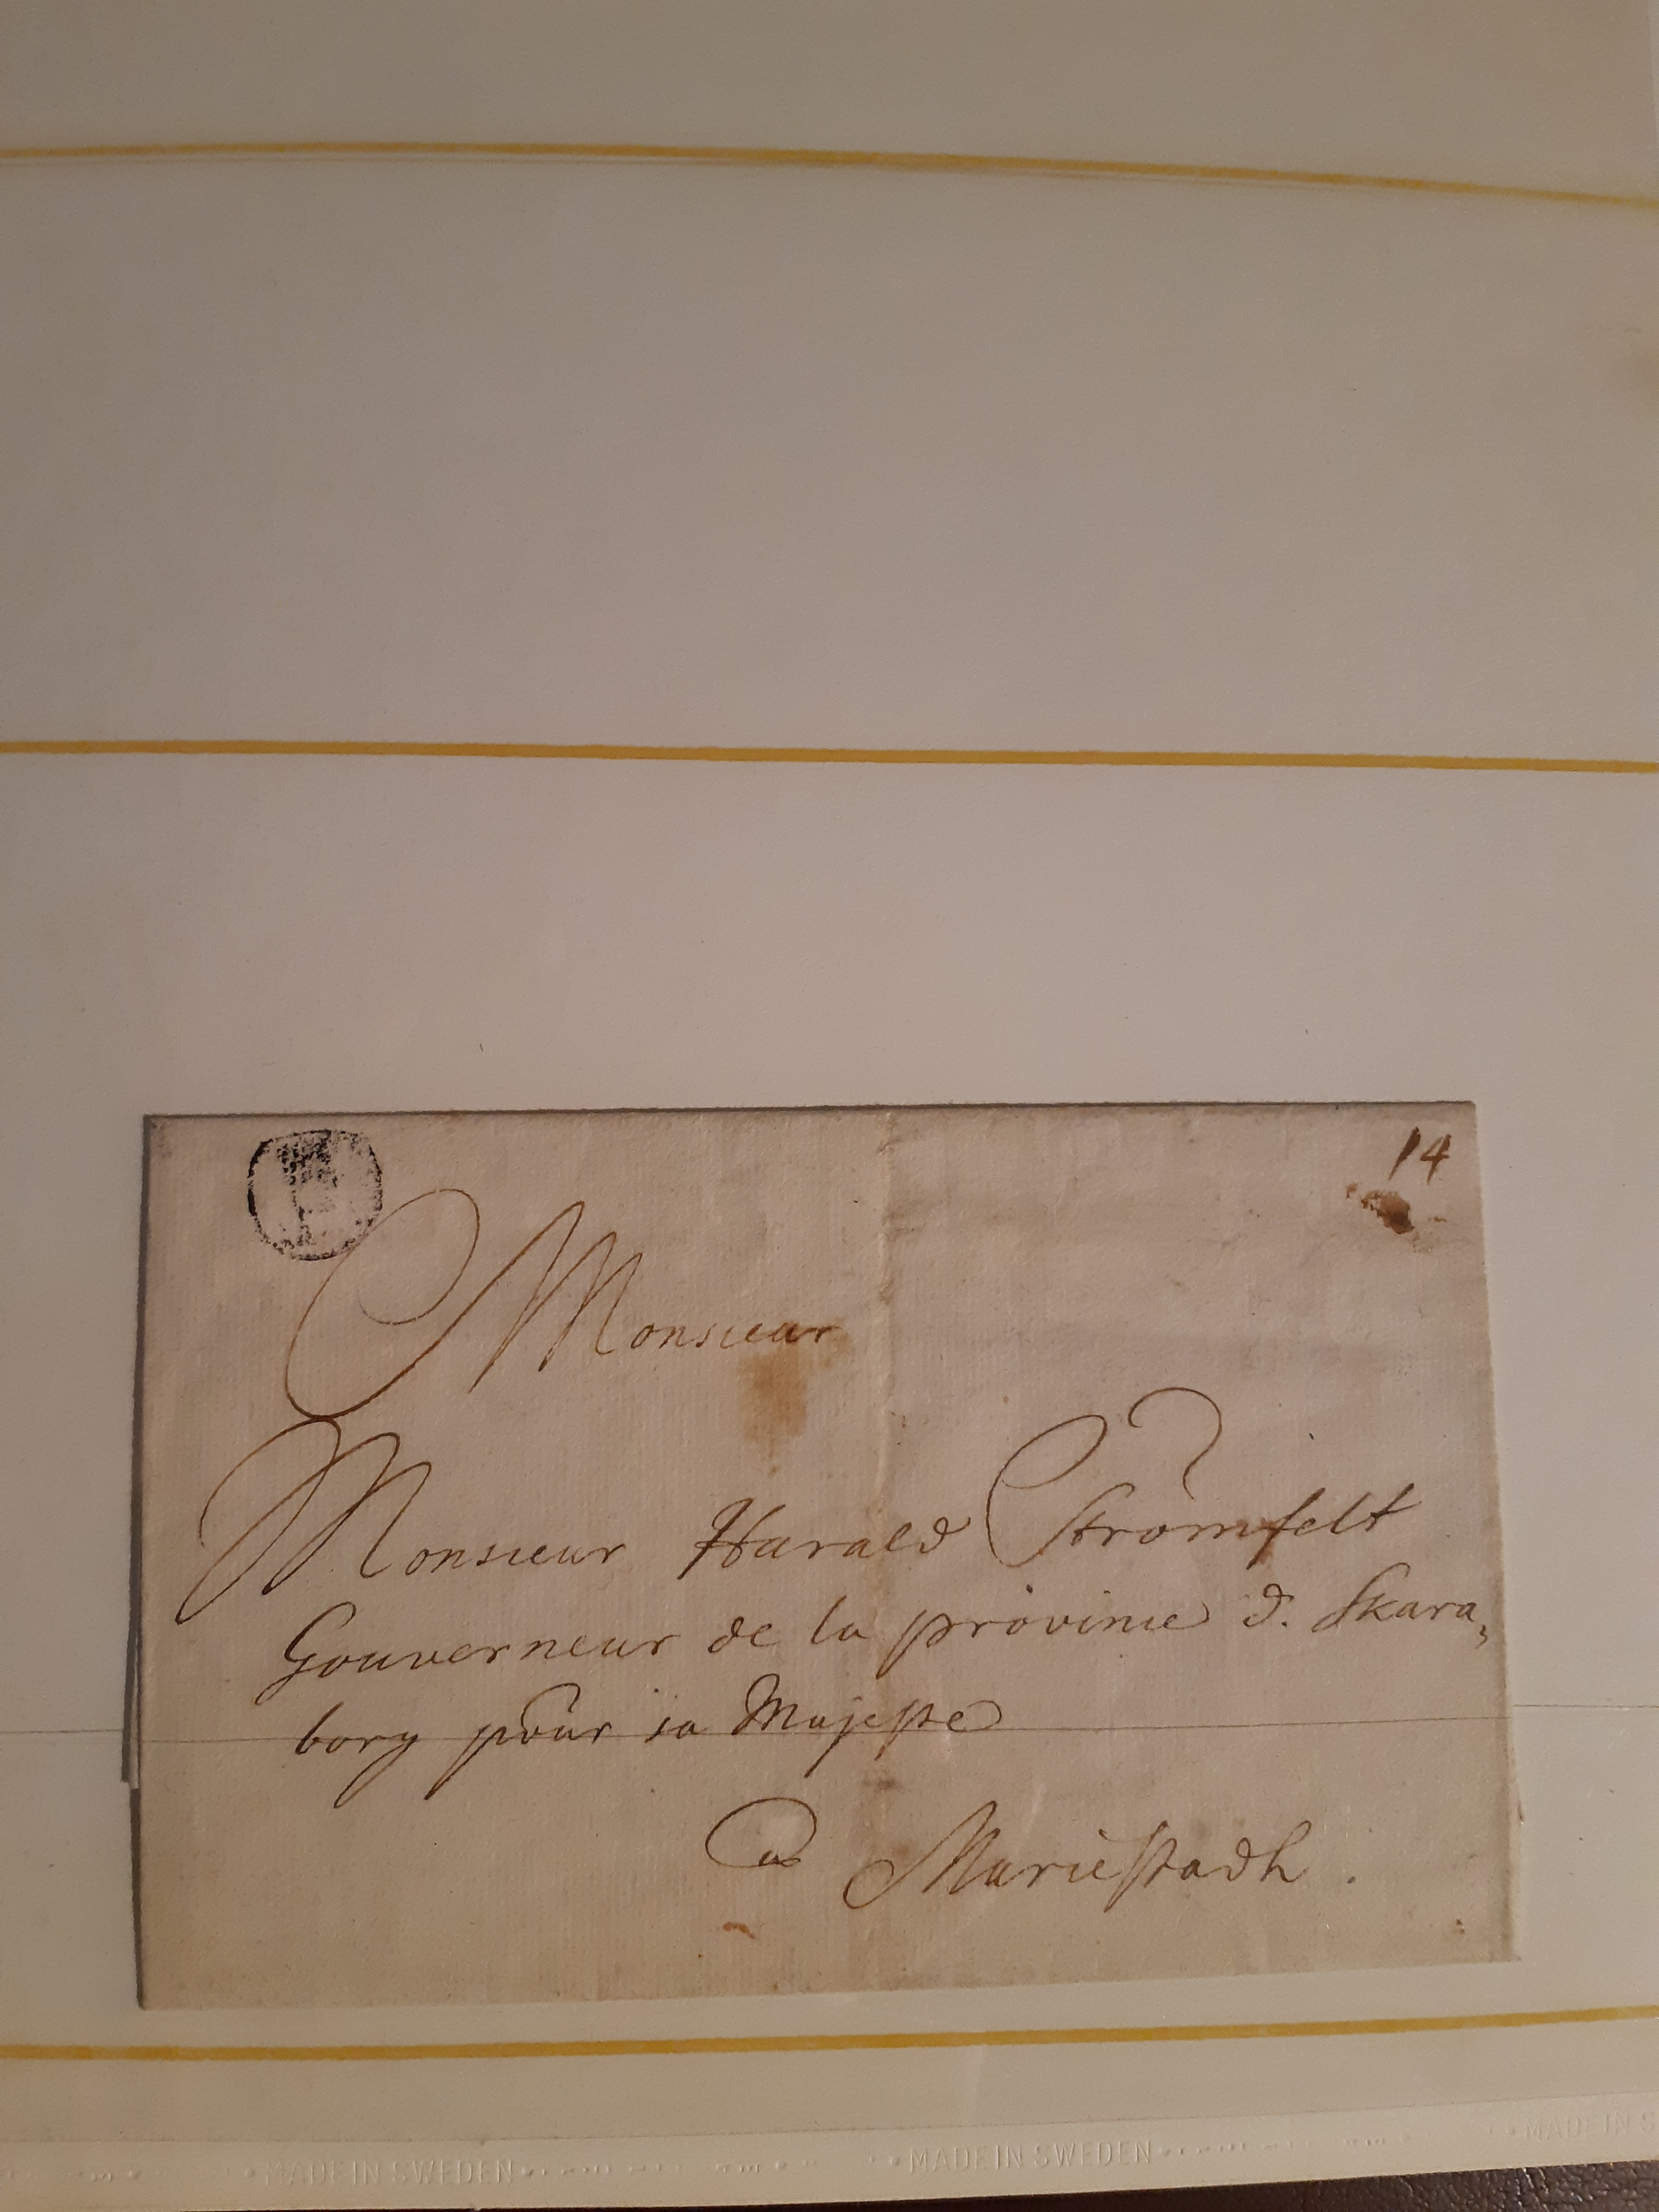 14
Monsieur
Monsieur Harald Strömfelt
Gouverneur de la provinie d. Skara„
borg pour sa Majeste
a Mariestadh.
MADE IN SWEDEN MADE IN SWEDEN MADE IN S